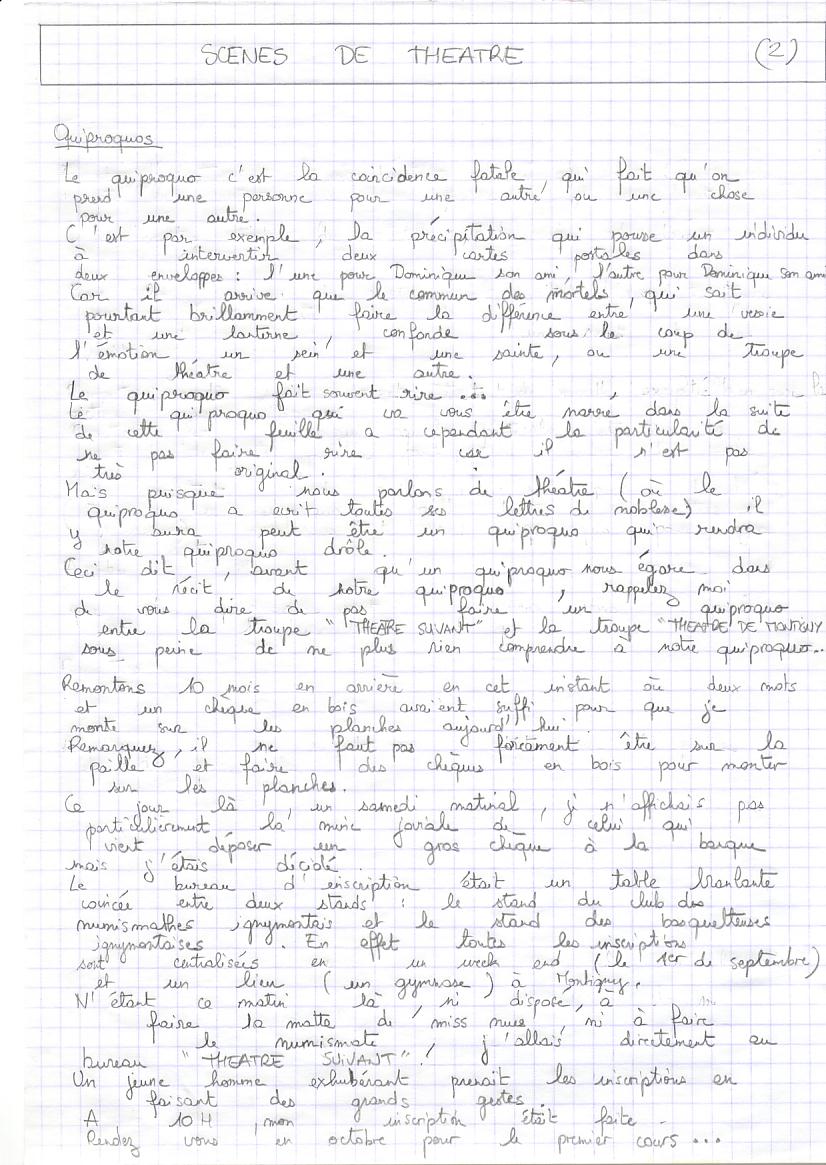 SCENES DE THEATRE (2)
Quiproquos
Le quiproquo c'est la coincidence fatale, qui fait qu'on
prend une personne pour une autre ou une chose
pour une autre.
C'est par exemple, la précipitation qui pousse un individu
à intervertir deux cartes postales dans
deux enveloppes : l'une pour Dominique son ami, l'autre pour Dominique son ami
Car il arrive que le commun des mortels, qui sait
pourtant brillamment faire la différence entre une vessie
et une lanterne, confonde sous le coup de
l'émotion un sein et une sainte, ou une troupe
de théâtre et une autre.
Le quiproquo fait souvent rire ...
Le quiproquo qui va vous être narré dans la suite
de cette feuille a cependant la particularité de
ne pas faire rire car il n'est pas
très original.
Mais puisque nous parlons de théâtre (où le
quiproquo a ecrit toutes ses lettres de noblesse) il
y aura peut être un quiproquo qui rendra
notre quiproquo drôle.
Ceci dit, avant qu'un quiproquo nous égare dans
le récit de notre quiproquo, rappelez moi
de vous dire de pas faire un quiproquo
entre la troupe "THEATRE SUIVANT" et la troupe "THEATRE DE MONTIGNY
sous peine de ne plus rien comprendre à notre quiproquo...
Remontons 10 mois en arrière en cet instant où deux mots
et un chèque en bois avaient suffi pour que je
monte sur les planches aujourd'hui.
Remarquez, il ne faut pas forcément être sur la
paille et faire des chèques en bois pour monter
sur les planches.
Ce jour là, un samedi matinal, je n'affichais pas
particulièrement la mine joviale de celui qui
vient déposer un gros chèque à la banque
mais j'étais décidé.
Le bureau d'inscription était un table branlante
coincée entre deux stands : le stand du club des
numismathes ignymontais et le stand des basquetteuses
ignymontaises. En effet toutes les inscriptions
sont centralisées en un week end (le 1er de septembre)
et un lieu (un gymnase) à Montigny.
N'étant ce matin là, ni disposé, à
faire la matte de miss muse, ni à faire
le numismate, j'allais directement au
bureau "THEATRE SUIVANT"!
Un jeune homme exhubérant prenait les inscriptions en
faisant des grands gestes.
A 10H, mon inscription était faite.
Rendez vous en octobre pour le premier cours ...